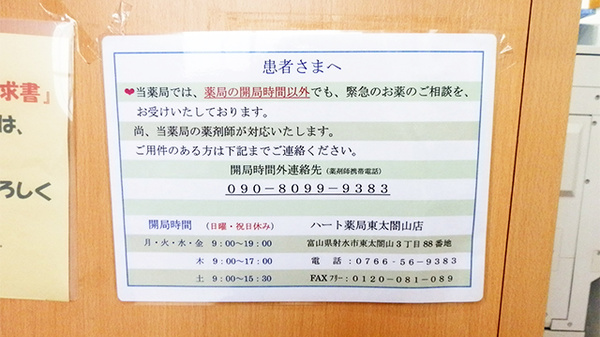 求書」
は、
ろしく
患者さまへ
❤当薬局では、薬局の開局時間以外でも、緊急のお薬のご相談を、
お受けいたしております。
尚、当薬局の薬剤師が対応いたします。
ご用件のある方は下記までご連絡ください。
開局時間外連絡先(薬剤師携帯電話)
090-8099-9383
開局時間 (日曜・祝日休み)
月・火・水・金 9:00~19:00
木 9:00~17:00
土 9:00~15:30
ハート薬局東太閤山店
富山県射水市東太閤山3丁目88番地
電 話 :0766-56-9383
FAX フリー:0120-081-089